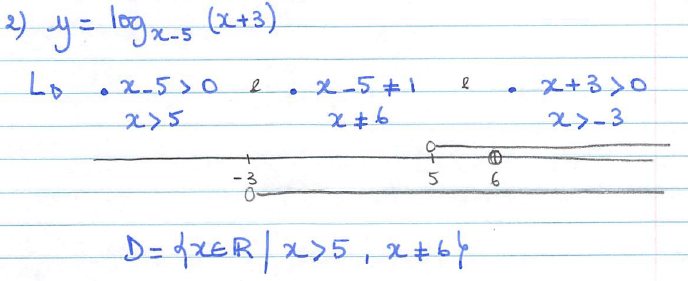 2) y = log x-5 (x+3)
L D • x-5 > 0 e • x-5 ≠ 1 e • x+3 > 0
x > 5 x ≠ 6 x > -3
-3 5 6
D = {x ∈ R / x > 5, x ≠ 6}